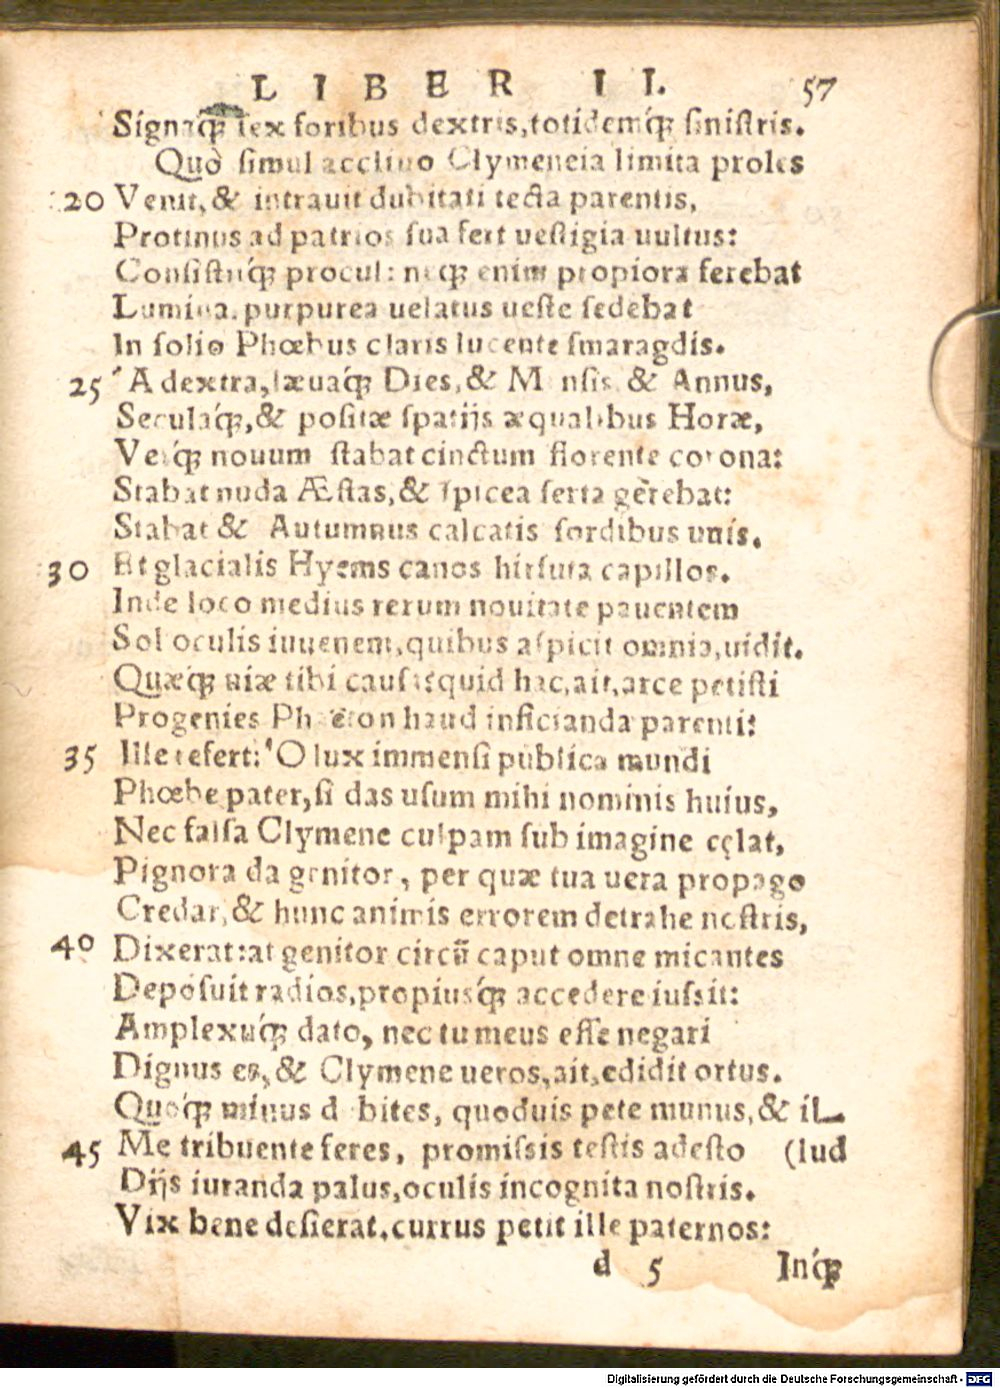 LIBER II. 57
Signaq́; sex foribus dextris, totidemq́; sinistris.
Quò simul accliuo Clymeneia limita proles
20 Venit, & intrauit dubitati tecta parentis,
Protinus ad patrios sua fert uestigia uultus:
Consistitq́; procul: neq; enim propiora ferebat
Lumina. purpurea uelatus ueste sedebat
In solio Phœbus claris lucente smaragdis.
25 A dextra, læuaq́; Dies, & Mensis & Annus,
Seculaq́;, & positæ spatijs æqualibus Horæ,
Verq́; nouum stabat cinctum florente corona:
Stabat nuda Æstas, & spicea serta gerebat:
Stabat & Autumnus calcatis sordibus unis.
30 Et glacialis Hyems canos hirsuta capillos.
Inde loco medius rerum nouitate pauentem
Sol oculis iuuenem, quibus aspicit omnia, uidit.
Quæq́; uiæ tibi causa? quid hac, ait, arce petisti
Progenies Phaëton haud inficianda parenti?
35 Ille refert: O lux immensi publica mundi
Phœbe pater, si das usum mihi nominis huius,
Nec falsa Clymene culpam sub imagine cęlat,
Pignora da genitor, per quæ tua uera propago
Credar, & hunc animis errorem detrahe nostris,
40 Dixerat: at genitor circũ caput omne micantes
Deposuit radios, propiusq́; accedere iussit:
Amplexuq́; dato, nec tu meus esse negari
Dignus es, & Clymene ueros, ait, edidit ortus.
Quoq́; minus dubites, quoduis pete munus, & il-
45 Me tribuente feres, promissis testis adesto (lud
Dijs iuranda palus, oculis incognita nostris.
Vix bene desierat, currus petit ille paternos:
d 5 Inq́;
Digitalisierung gefördert durch die Deutsche Forschungsgemeinschaft - DFG